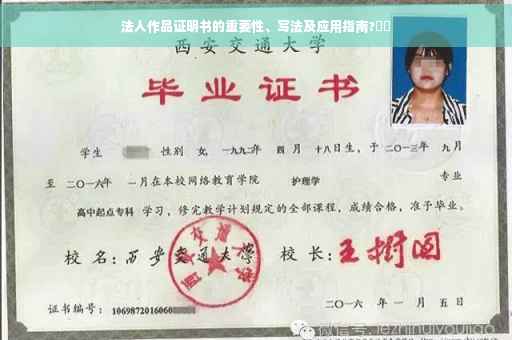 法人作品证明书的重要性、写法及应用指南?
西安交通大学
毕业证书
学生 性别 女,一九九二年 四 月 十八日生，于 二〇一三年 九月
至 二〇一六年 一月在本校网络教育学院 护理学 专业
高中起点专科 学习，修完教学计划规定的全部课程，成绩合格，准予毕业。
校 名：西安交通大学 校 长：王树国
证书编号： 1069872016060
二〇一六 年 一 月 五 日
微信号: jiezhinuiyoujiao